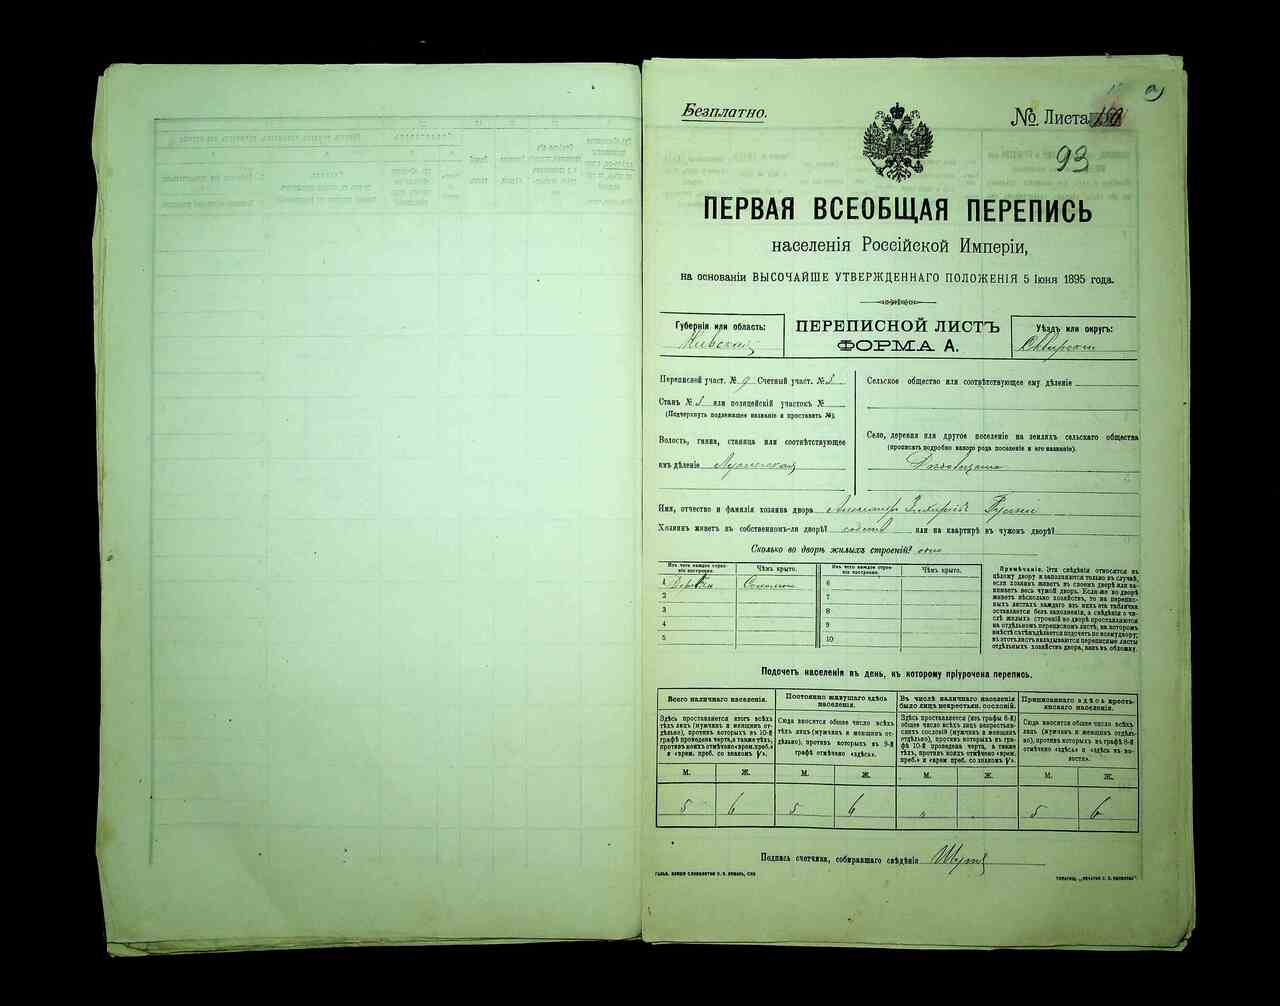 Безплатно.
№ Листа
93
ПЕРВАЯ ВСЕОБЩАЯ ПЕРЕПИСЬ
населенія Россійской Имперіи,
на основаніи ВЫСОЧАЙШЕ УТВЕРЖДЕННАГО ПОЛОЖЕНІЯ 5 Іюня 1895 года.
Губернія или область:
Кіевская
ПЕРЕПИСНОЙ ЛИСТЪ
ФОРМА А.
Уѣздъ или округъ:
Сквирскій
Переписной участ. № 9 Счетный участ. №
Станъ № или полицейскій участокъ №
(Подчеркнуть подлежащее названіе и проставить №).
Волость, гмина, станица или соотвѣтствующее
имъ дѣленіе
Сельское общество или соотвѣтствующее ему дѣленіе
Село, деревня или другое поселеніе на земляхъ сельскаго общества
(прописать подробно какого рода поселеніе и его названіе).
Имя, отчество и фамилія хозяина двора Александр
Хозяинъ живетъ въ собственномъ-ли дворѣ? собств или на квартирѣ въ чужомъ дворѣ?
Сколько во дворѣ жилыхъ строеній? одно
Изъ чего каждое строеніе построено. Чѣмъ крыто. Изъ чего каждое строеніе построено. Чѣмъ крыто.
1 Дерев Соломою 6
2 7
3 8
4 9
5 10
Примѣчаніе. Эти свѣдѣнія относятся къ
цѣлому двору и заполняются только въ случаѣ,
если хозяинъ живетъ въ своемъ дворѣ или занимаетъ
весь чужой дворъ. Если же во дворѣ
живетъ нѣсколько хозяйствъ, то на переписныхъ
листахъ каждаго изъ нихъ эта табличка
оставляется безъ заполненія, а свѣдѣнія о числѣ
жилыхъ строеній во дворѣ проставляются
на отдѣльномъ переписномъ листѣ, на которомъ
вмѣстѣ съ тѣмъ дѣлается подсчетъ по всему двору;
въ этотъ листъ вкладываются переписные листы
отдѣльныхъ хозяйствъ двора, какъ въ обложку.
Подсчетъ населенія въ день, къ которому пріурочена перепись.
Всего наличнаго населенія.
Здѣсь проставляется итогъ всѣхъ
лицъ (мужчинъ и женщинъ отдѣльно),
противъ которыхъ въ 10-й
графѣ проведена черта, а также тѣхъ,
противъ коихъ отмѣчено «врем. преб.»
и «врем. преб. со знакомъ V».
Постоянно живущаго здѣсь
населенія.
Сюда вносится общее число всѣхъ
тѣхъ лицъ (мужчинъ и женщинъ отдѣльно),
противъ которыхъ въ 9-й
графѣ отмѣчено «здѣсь».
Въ числѣ наличнаго населенія
было лицъ некрестьян. сословій.
Здѣсь проставляется (изъ графы 6-й)
общее число всѣхъ лицъ некрестьянскихъ
сословій (мужчинъ и женщинъ
отдѣльно), противъ которыхъ въ графѣ
10-й проведена черта, а также
тѣхъ, противъ коихъ отмѣчено «врем.
преб.» и «врем. преб. со знакомъ V».
Приписаннаго здѣсь крестьянскаго
населенія.
Сюда вносится общее число всѣхъ
лицъ (мужчинъ и женщинъ отдѣльно),
противъ которыхъ въ графѣ 8-й
отмѣчено «здѣсь» и «здѣсь въ волости».
М. Ж. М. Ж. М. Ж. М. Ж.
5 6 5 6 " " 5 6
Подпись счетчика, собиравшаго свѣдѣнія